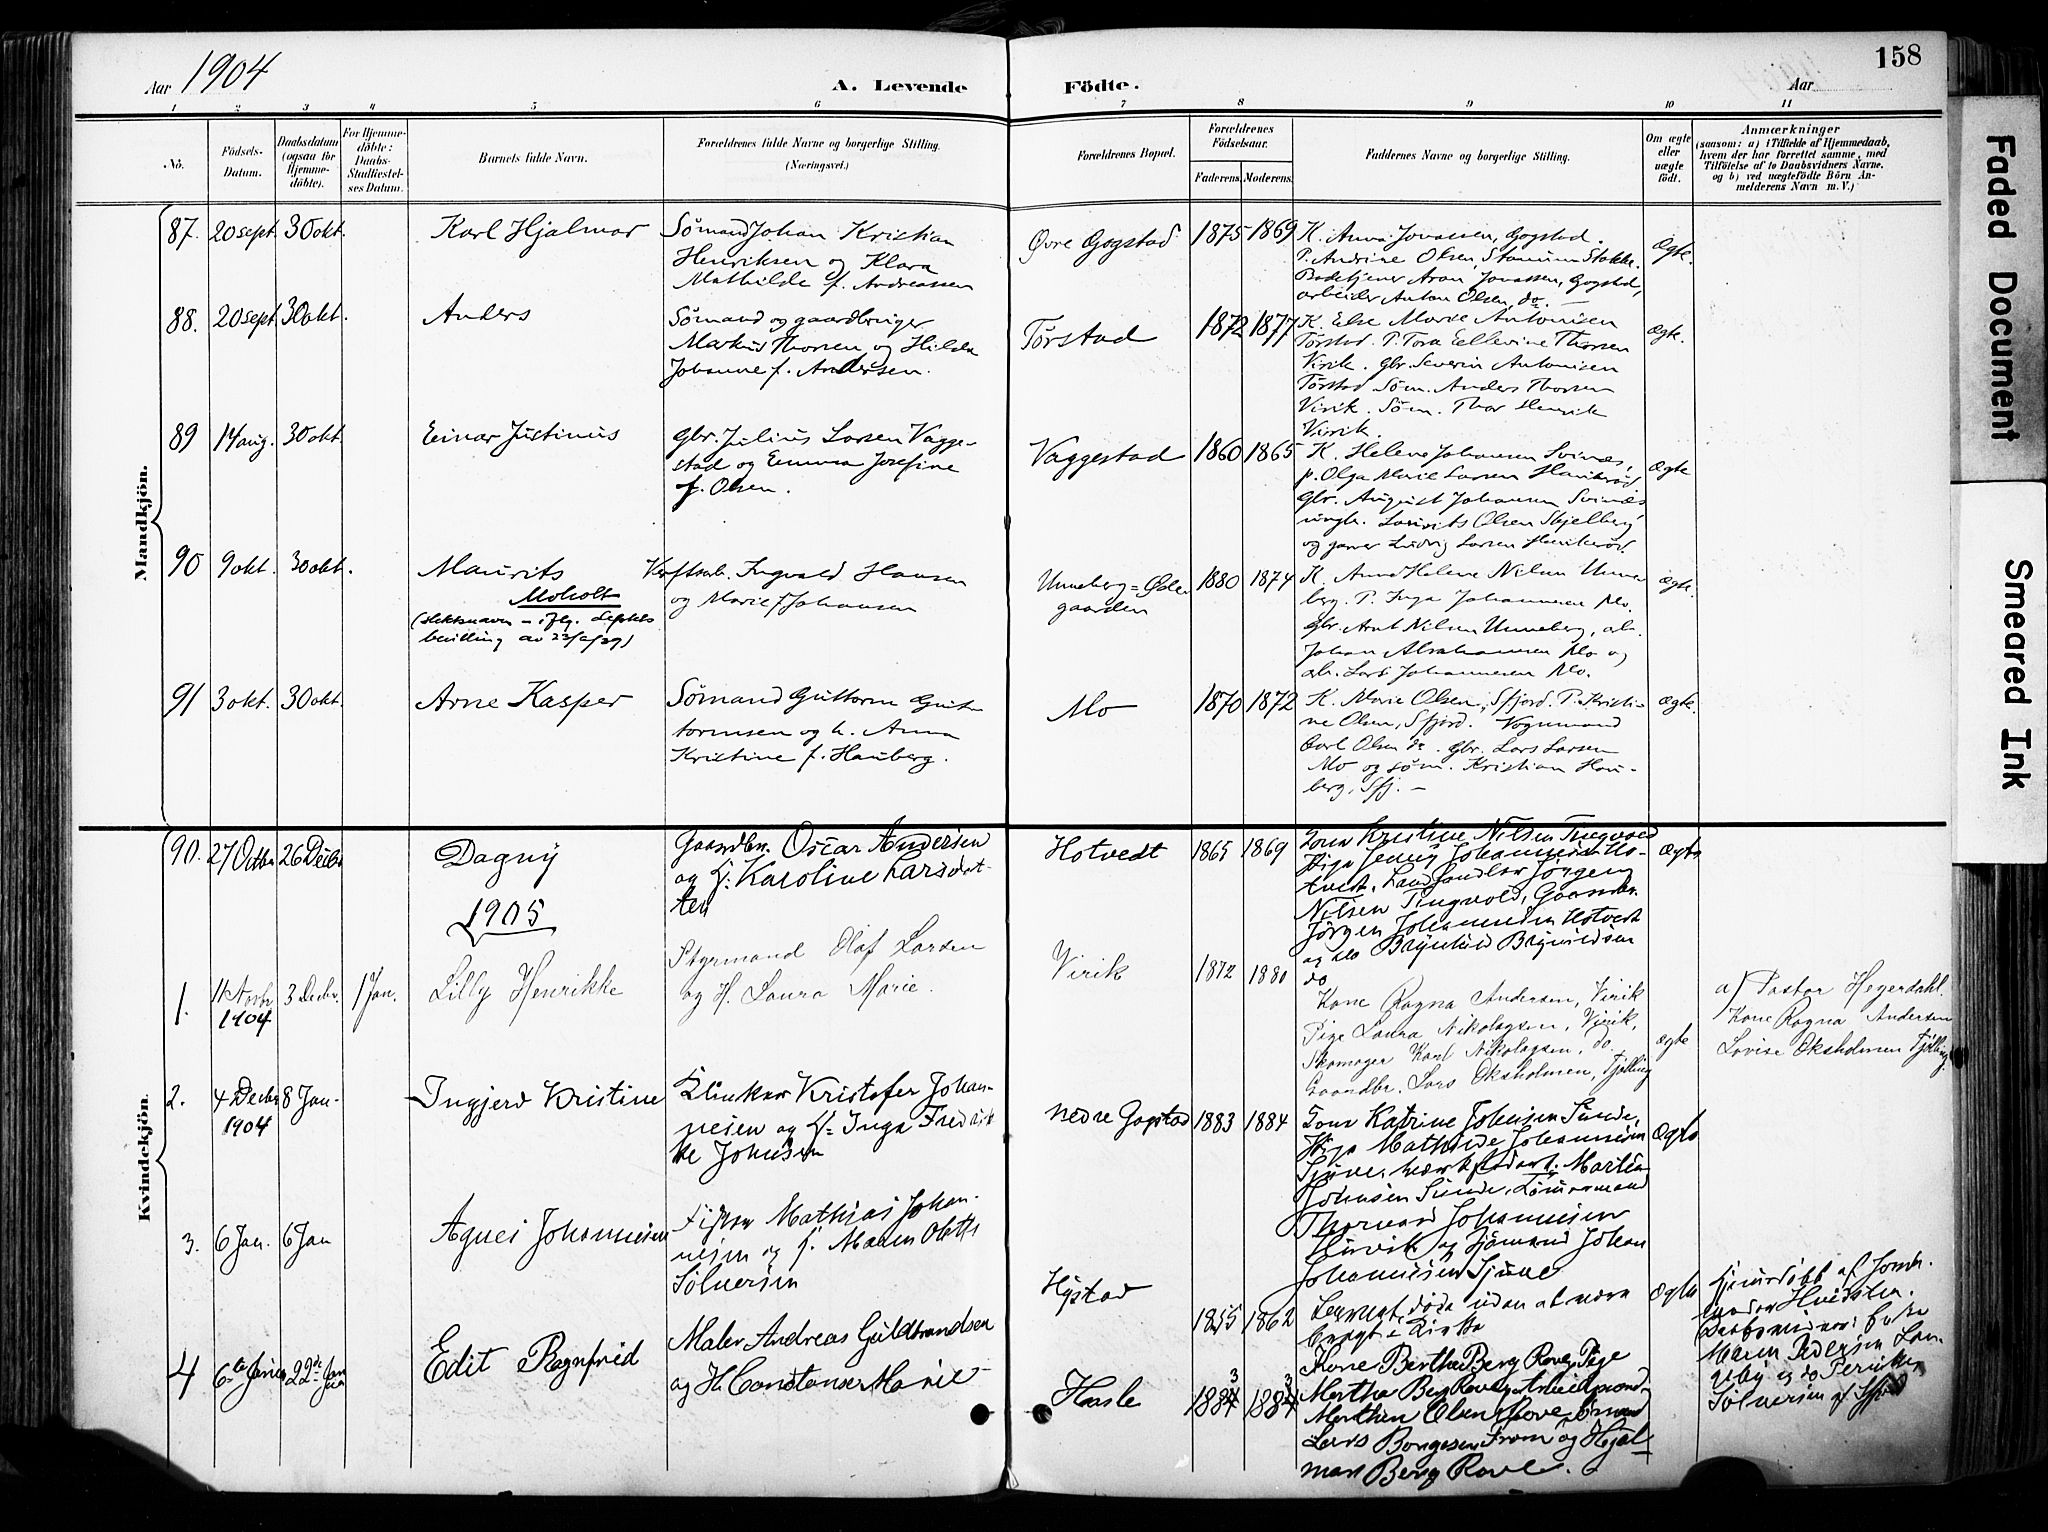 Aar 1904
A. Levende Födte.
Aar
158
1 2 3 4 5 6 7 8 9 10 11
No.
Födsels-
Datum.
Daabsdatum
(ogsaa for
Hjemme-
döbte).
For Hjemme-
döbte:
Daabs-
Stadfæstel-
ses Datum.
Barnets fulde Navn.
Forældrenes fulde Navne og borgerlige Stilling.
(Næringsvei.)
Forældrenes Bopæl.
Forældrenes
Födselsaar.
Faderens. Moderens.
Faddernes Navne og borgerlig Stilling.
Om ægte
eller
uægte
födt.
Anmærkninger
(saasom: a) i Tilfælde af Hjemmedaab,
hvem der har forrettet samme, med
Tilföielse af to Daabsvidners Navne.
og b) ved uægtefödte Börn An-
melderens Navn m. V.)
Mandkjön.
87. 20 sept. 30 okt. Karl Hjalmar
Sømand Johan Kristian
Henriksen og Klara
Mathilde f. Andreassen
Øvre Gogstad 1875 1869
K. Anna Jonassen, Gogstad.
P. Andrine Olsen, Stokke.
Badetjener Aron Jonassen, Gogstad,
arbeider Anton Olsen, do. —
Ægte.
88. 20 sept. 30 okt. Anders
Sømand og gaardbruger
Markus Thorsen og Hilda
Johanne f. Andersen.
Tørstad 1872 1877
K. Else Marie Antonisen
Tørstad. P. Tora Ellevine Thorsen
Virik. gbr. Severin Antonisen
Tørstad Søm. Anders Thorsen
Virik. Søm. Thor Henrik
Virik.
Ægte.
89 14 aug. 30 okt. Einar Justinus
gbr. Julius Larsen Vagge-
stad og Emma Josefine
f. Olsen.
Vaggestad 1860 1865
K. Helene Johansen Svinæs,
p. Olga Marie Larsen Haukerød
gbr. August Johansen Svinæs
ungk. Lauritz Olsen Skjelberg
og garver Ludvig Larsen Haukerød.
Ægte
90 9 okt. 30 okt. Maurits
Moholt
(slektsnavn – iflg. Fylkets
bevilling av
Verftsarb. Ingvald Hansen
og Marie f. Johansen
Unneberg = Øde
gaarden
1880 1874
K. Anna Helene Nilsen Unne
berg. P. Inga Johannesen Mo.
gbr. Arnt Nilsen Unneberg, arb.
Johan Abrahamsen Mo og
arb. Lars Johannesen Mo.
Ægte.
91 3 okt. 30 okt. Arne Kasper
Sømand Guttorm Gut-
tormsen og h. Anna
Kristine f. Hauberg.
Mo 1870 1872
K. Marie Olsen, Sfjord. P. Kristi-
ne Olsen, Sfjord. Vognmand
Carl Olsen do. gbr. Lars Larsen
Mo og søm. Kristian Hau-
berg, Sfj. —
Ægte.
Kvindekjön.
90. 27 Octbr 26 Decbr Dagny
Gaardbr. Oscar Andersen
og H: Karoline Larsdat-
ter
Hotvedt 1865 1869
Kone Kristine Nilsen Tingvold
Pige Jenny Johannesen Ho-
tvedt. Landhandler Jørgen
Nilsen Tingvold, Gaardbr.
Jørgen Johannesen Hotvedt
og do Brynhild Brynildsen
do
Ægte
1905
1. 11 Novbr 1904 3 Decbr. 1 Jan. Lilly Henrikke
Styrmand Olaf Larsen
og H. Laura Marie.
Virik 1872 1880
Kone Ragna Andersen, Virik
Pige Laura Nikolaysen, Virik,
Skomager Karl Nikolaysen, do.
Gaardbr. Lars Oksholmen, Tjølling
Ægte
a) Pastor Heyerdahl.
Kone Ragna Andersen
Lovise Oksholmen Tjølling.
2. 4 Decbr 1904 8 Jan. Ingjerd Kristine
Klinker Kristofer Johan-
nesen og H: Inga Fredrik
ke Johnsen
Nedre Gogstad 1883 1884
Kone Katrine Johnsen Sunde,
Pige Mathilde Johannesen
Sjuve, værkstedarb. Martin
Johnsen Sunde, Tømmermand
Thorvald Johannesen
Virvik og Sjømand Johan
Johannesen Sjuve
Ægte
3. 6 Jan. 6 Jan Agnes Johannesen
Fisker Mathias Johan-
nesen og H. Maren Olette
Sølversen
Hystad 1855 1862
døde uden at være
bragt i Kirke
Ægte
Hjemdøbt af Jorde-
moder Hvidsten.
Daabsvidner: Fru
Maren Pedersen Lan-
geby og do
Sølversen af Sfjord
4 6te Januar 22de Januar Edit Ragnfrid
Maler Andreas Guldbrandsen
og H. Constanse Marie
Hasle 1883 1883
Kone Berthe Berg Rove, Pige
Martha Berg Rove, Arbeidsmand
Marthin Olsen Rove Sømand
Lars Borgesen Fram og Hjal-
mar Berg Rove.
Faded Document
Smeared Ink